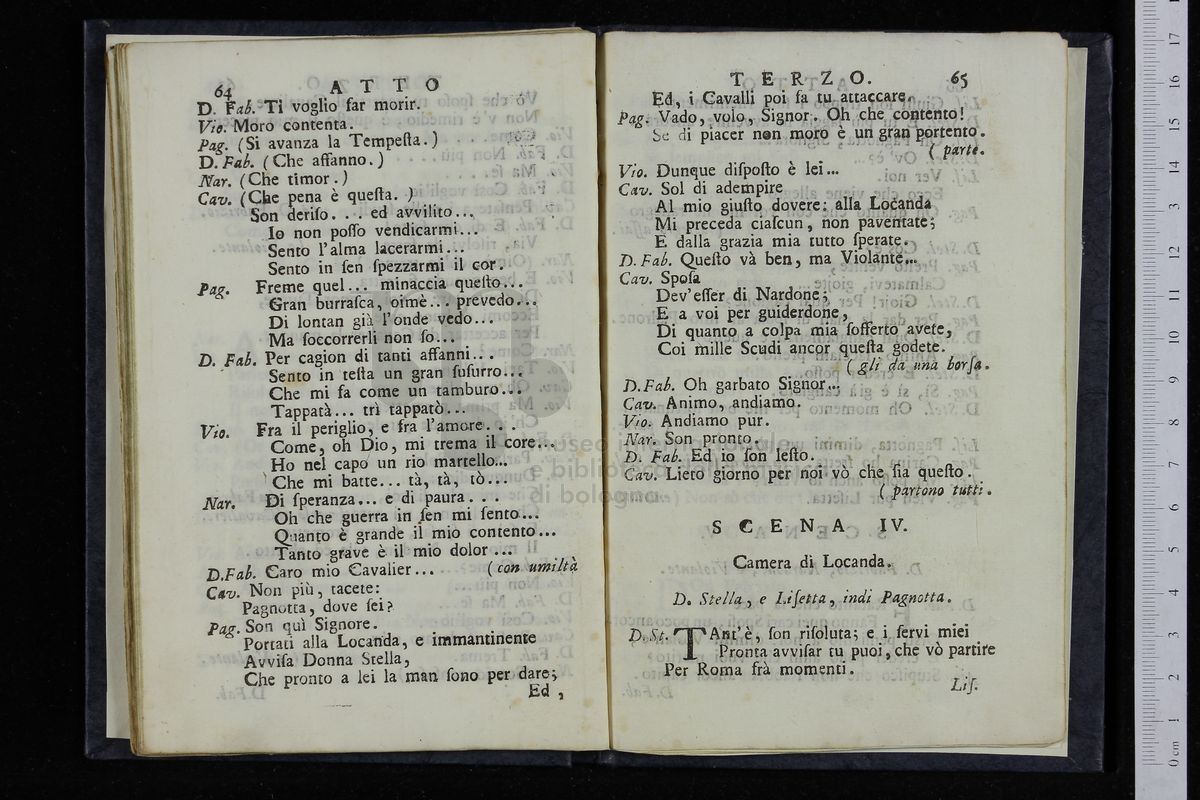 64 ATTO
D. Fab. Ti voglio far morir.
Vio. Moro contenta.
Pag. (Si avanza la Tempeſta.)
D. Fab. (Che affanno.)
Nar. (Che timor.)
Cav. (Che pena è queſta.)
Son deriſo... ed avvilito...
Io non poſſo vendicarmi...
Sento l'alma lacerarmi...
Sento in ſen ſpezzarmi il cor.
Pag. Freme quel... minaccia queſto...
Gran burraſca, oimè... prevedo...
Di lontan già l'onde vedo...
Ma ſoccorrerli non ſo...
D. Fab. Per cagion di tanti affanni...
Sento in teſta un gran ſuſurro...
Che mi fa come un tamburo...
Tappatà... trì tappatò...
Vio. Fra il periglio, e fra l'amore...
Come, oh Dio, mi trema il core...
Ho nel capo un rio martello...
Che mi batte... tà, tà, tò...
Nar. Di ſperanza... e di paura...
Oh che guerra in ſen mi ſento...
Quanto è grande il mio contento...
Tanto grave è il mio dolor...
D.Fab. Caro mio Cavalier... (con umiltà
Cav. Non più, tacete:
Pagnotta, dove ſei?
Pag. Son quì Signore.
Portati alla Locanda, e immantinente
Avviſa Donna Stella,
Che pronto a lei la man ſono per dare;
Ed,
TERZO. 65
Ed, i Cavalli poi fa tu attaccare.
Pag. Vado, volo, Signor. Oh che contento!
Se di piacer non moro è un gran portento.
(parte.
Vio. Dunque diſpoſto è lei...
Cav. Sol di adempire
Al mio giuſto dovere: alla Locanda
Mi preceda ciaſcun, non paventate;
E dalla grazia mia tutto ſperate.
D. Fab. Queſto và ben, ma Violante...
Cav. Spoſa
Dev'eſſer di Nardone;
E a voi per guiderdone,
Di quanto a colpa mia ſofferto avete,
Coi mille Scudi ancor queſta godete.
(gli da una borſa.
D.Fab. Oh garbato Signor...
Cav. Animo, andiamo.
Vio. Andiamo pur.
Nar. Son pronto.
D. Fab. Ed io ſon leſto.
Cav. Lieto giorno per noi vò che ſia queſto.
(partono tutti.
SCENA IV.
Camera di Locanda.
D. Stella, e Liſetta, indi Pagnotta.
D. St. TAnt'è, ſon riſoluta; e i ſervi miei
Pronta avviſar tu puoi, che vò partire
Per Roma frà momenti.
Liſ.
museo internazionale
e biblioteca della musica
di bologna
0 cm 1 2 3 4 5 6 7 8 9 10 11 12 13 14 15 16 17